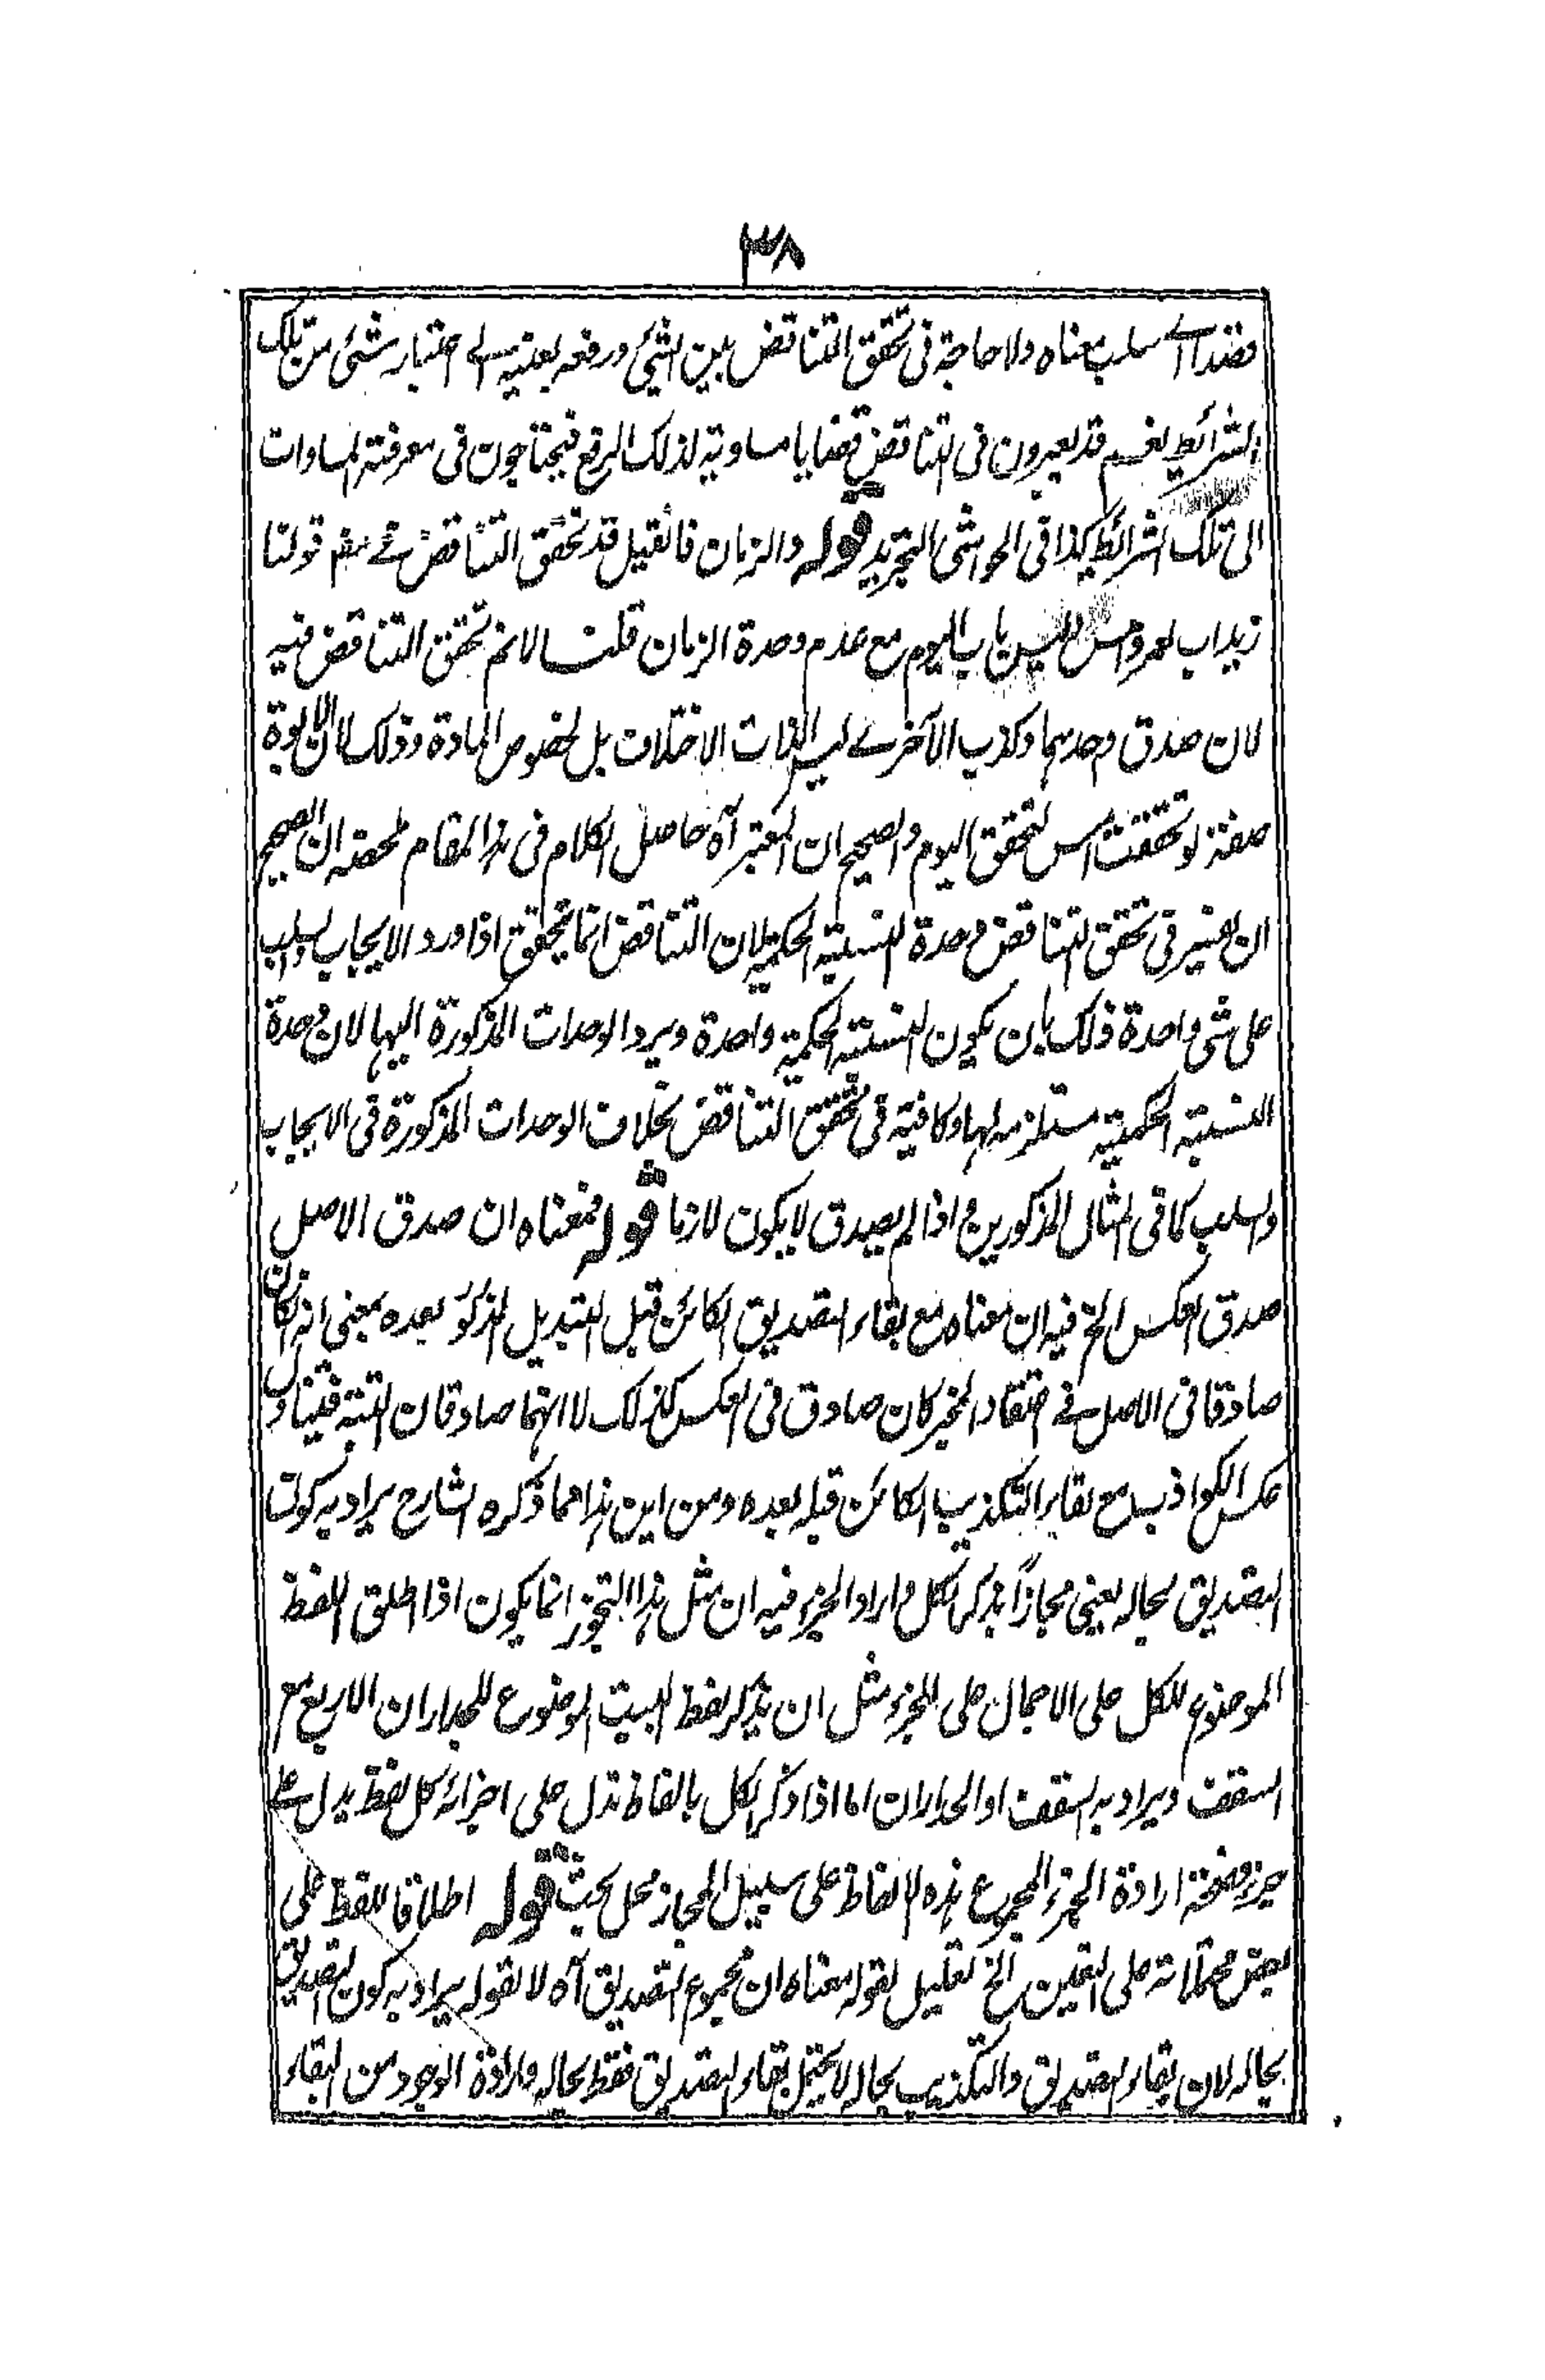 ٣٨
قصدا الى سلب معناه ولا حاجة فى تحقق التناقض بين الشئ ورفعه بعينه الى اعتبار شئ من تلك
الشرائط نعم قد يعبرون فى التناقض قضايا مساوية لذلك الرفع فيحتاجون فى معرفة المساوات
الى تلك الشرائط كذا فى الحواشى التجريد قوله والزمان فان قيل قد تحقق التناقض فى قولنا
زيد اب لعمرو امس ليس باب اليوم مع عدم وحدة الزمان قلت لا نم تحقق التناقض فيه
لان صدق احدهما وكذب الآخر ليس لذات الاختلاف بل لخصوص المادة وذلك لان الابوة
صفة لو تحققت امس لتحقق اليوم والصحيح ان المعتبر آه حاصل الكلام فى هذا المقام ملخصه ان الصحيح
ان يعتبر فى تحقق التناقض وحدة النسبة الحكمية لان التناقض انما يتحقق اذا ورد الايجاب والسلب
على شى واحد وذلك بان يكون النسبة الحكمية واحدة ويرد الوحدات المذكورة اليها لان وحدة
النسبة الحكمية مستلزمه لها وكافية فى تحقق التناقض بخلاف الوحدات المذكورة فى الايجاب
والسلب كما فى المثال المذكورين واذا لم يصدق لا يكون لازما قوله فمعناه ان صدق الاصل
صدق العكس الخ فيه ان معناه مع بقاء التصديق الكائن قبل التبديل المذكور بعده بمعنى انه ان كان
صادقا فى الاصل فى اعتقاد المخبر كان صادق فى العكس كذلك لا انهما صادقان البتة فيتناول
عكس الكواذب مع بقاء التكذيب الكائن قبله بعده ومن اين هذا مما ذكره الشارح يراد به كون
التصديق بحاله يعنى مجازا بذكر الكل واراد الجزء وفيه ان مثل هذا التجوز انما يكون اذا اطلق اللفظ
الموضوع للكل على الاجمال على الجزء مثل ان يذكر لفظ البيت الموضوع للجداران الاربع مع
السقف ويراد به السقف او الجداران اما اذا ذكر الكل بالفاظ تدل على اجزائه كل لفظ يدل على
جزء فصحة ارادة الجزء المجموع هذه الالفاظ على سبيل المجاز محل بحث قوله اطلاقا للفظ على
بعض محتملاته على التعين الخ تعليل لقوله معناه ان مجموع التصديق آه لا لقوله يراد به كون التصديق
بحاله لان بقاء التصديق والتكذيب بحاله لا يحتمل بقاء التصديق فقط بحاله وارادة الوجود من البقاء